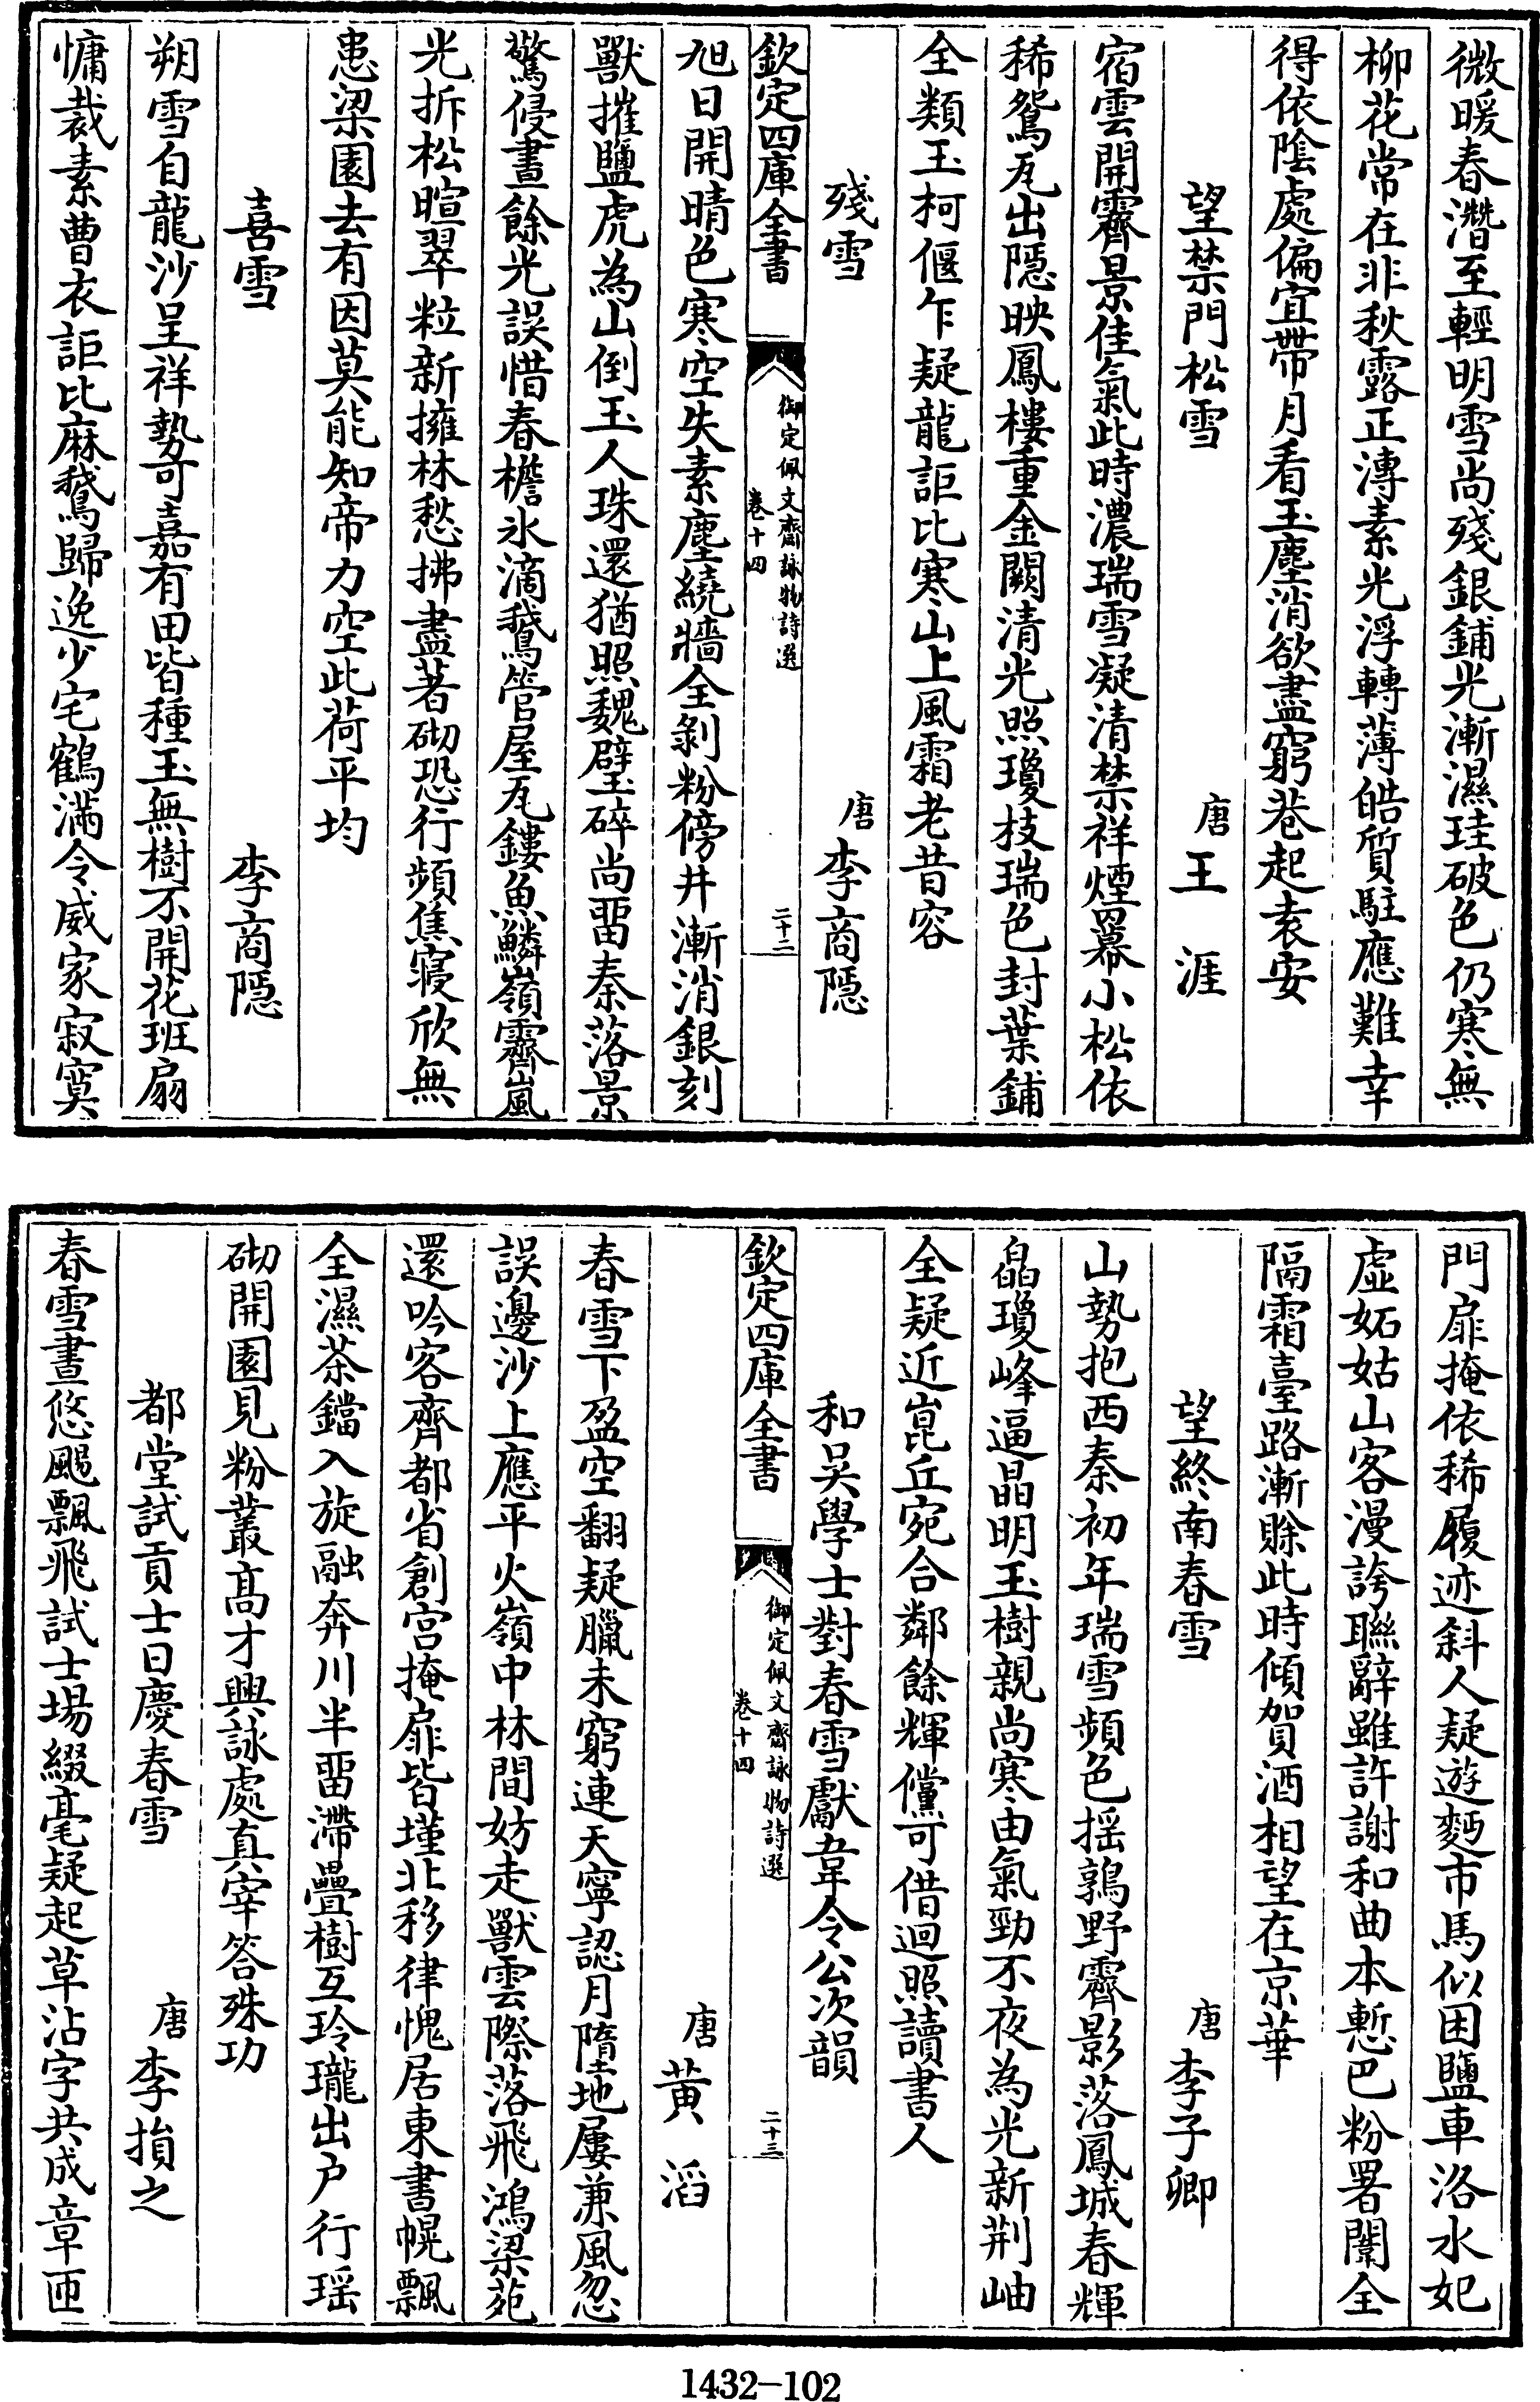 微暖春潛至輕明雪尚殘銀鋪光漸濕珪破色仍寒無
柳花常在非秋露正漙素光浮轉薄皓質駐應難幸
得依陰處偏宜帶月看玉塵消欲盡窮巷起袁安
望禁門松雪 唐 王涯
宿雲開霽景佳氣此時濃瑞雪凝清禁祥煙羃小松依
稀鴛瓦出隱映鳳樓重金闕清光照瓊枝瑞色封葉鋪
全類玉柯偃乍疑龍詎比寒山上風霜老昔容
殘雪 唐 李商隱
欽定四庫全書 御定佩文齋詠物詩選 卷十四 二十二
旭日開晴色寒空失素塵繞牆全剝粉傍井漸消銀刻
獸摧鹽虎為山倒玉人珠還猶照魏璧碎尚畱秦落景
驚侵晝餘光誤惜春檐氷滴鵞管屋瓦鏤魚鱗嶺霽嵐
光拆松暄翠粒新擁林愁拂盡著砌恐行頻焦寢欣無
患梁園去有因莫能知帝力空此荷平均
喜雪 李商隱
朔雪自龍沙呈祥勢可嘉有田皆種玉無樹不開花班扇
慵裁素曹衣詎比麻鵞歸逸少宅鶴滿令威家寂寞
門扉掩依稀履迹斜人疑遊麪市馬似困鹽車洛水妃
虛妬姑山客漫誇聯辭雖許謝和曲本慙巴粉署闈全
隔霜臺路漸賒此時傾賀酒相望在京華
望終南春雪 唐 李子卿
山勢抱西秦初年瑞雪頻色搖鶉野霽影落鳳城春輝
皛瓊峰逼晶明玉樹親尚寒由氣勁不夜為光新荆岫
全疑近崑丘宛合鄰餘輝儻可借迴照讀書人
和吳學士對春雪獻韋令公次韻
欽定四庫全書 御定佩文齋詠物詩選 卷十四 二十三
唐 黃滔
春雪下盈空翻疑臘未窮連天寧認月隨地屢兼風忽
誤邊沙上應平火嶺中林間妨走獸雲際落飛鴻梁苑
還吟客齊都省創宮掩扉皆墐北移律愧居東書幌飄
全濕茶鐺入旋融奔川半畱滯疊樹互玲瓏出户行瑶
砌開園見粉叢高才興詠處真宰答殊功
都堂試貢士日慶春雪 唐 李損之
春雪晝悠颺飄飛試士場綴毫疑起草沾字共成章匝
1432-102